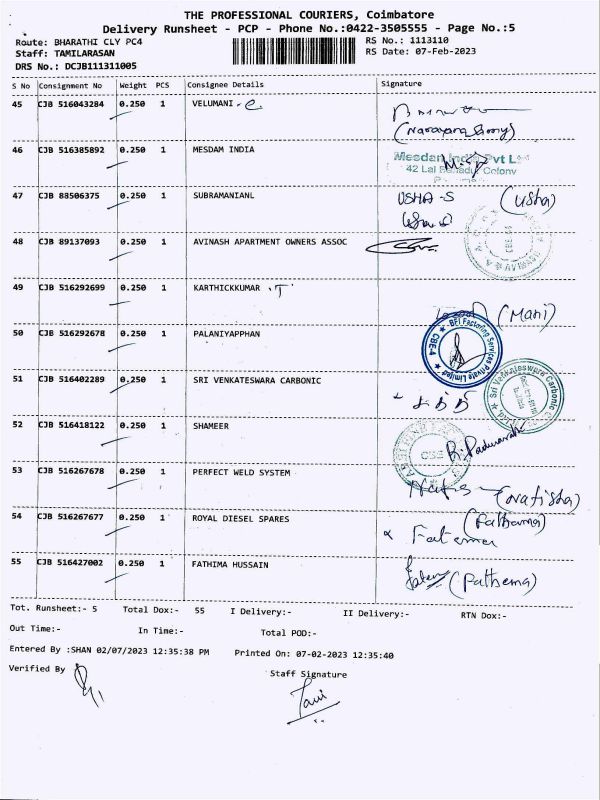 THE PROFESSIONAL COURIERS, Coimbatore
Delivery Runsheet - PCP - Phone No.:0422-3505555 - Page No.:5
Route: BHARATHI CLY PC4 RS No.: 1113110
Staff: TAMILARASAN RS Date: 07-Feb-2023
DRS No.: DCJB111311005
S No Consignment No Weight PCS Consignee Details Signature
45 CJB 516043284 0.250 1 VELUMANI
(Narayana Samy)
46 CJB 516385892 0.250 1 MESDAM INDIA
Mesdan India Pvt L
42 Lal Bahadur Colony
47 CJB 88506375 0.250 1 SUBRAMANIANL USHA-S (Usha)
48 CJB 89137093 0.250 1 AVINASH APARTMENT OWNERS ASSOC
49 CJB 516292699 0.250 1 KARTHICKKUMAR .T
(Mani)
50 CJB 516292678 0.250 1 PALANIYAPPHAN
BEI Factoring Services Private Limited
CBE-4
51 CJB 516402289 0.250 1 SRI VENKATESWARA CARBONIC
Sri Venkateswara Carbonic
52 CJB 516418122 0.250 1 SHAMEER
CBE
53 CJB 516267678 0.250 1 PERFECT WELD SYSTEM
(Natisha)
54 CJB 516267677 0.250 1 ROYAL DIESEL SPARES (Fathama)
Fatema
55 CJB 516427002 0.250 1 FATHIMA HUSSAIN (Fathema)
Tot. Runsheet:- 5 Total Dox:- 55 I Delivery:- II Delivery:- RTN Dox:-
Out Time:- In Time:- Total POD:-
Entered By :SHAN 02/07/2023 12:35:38 PM Printed On: 07-02-2023 12:35:40
Verified By Staff Signature